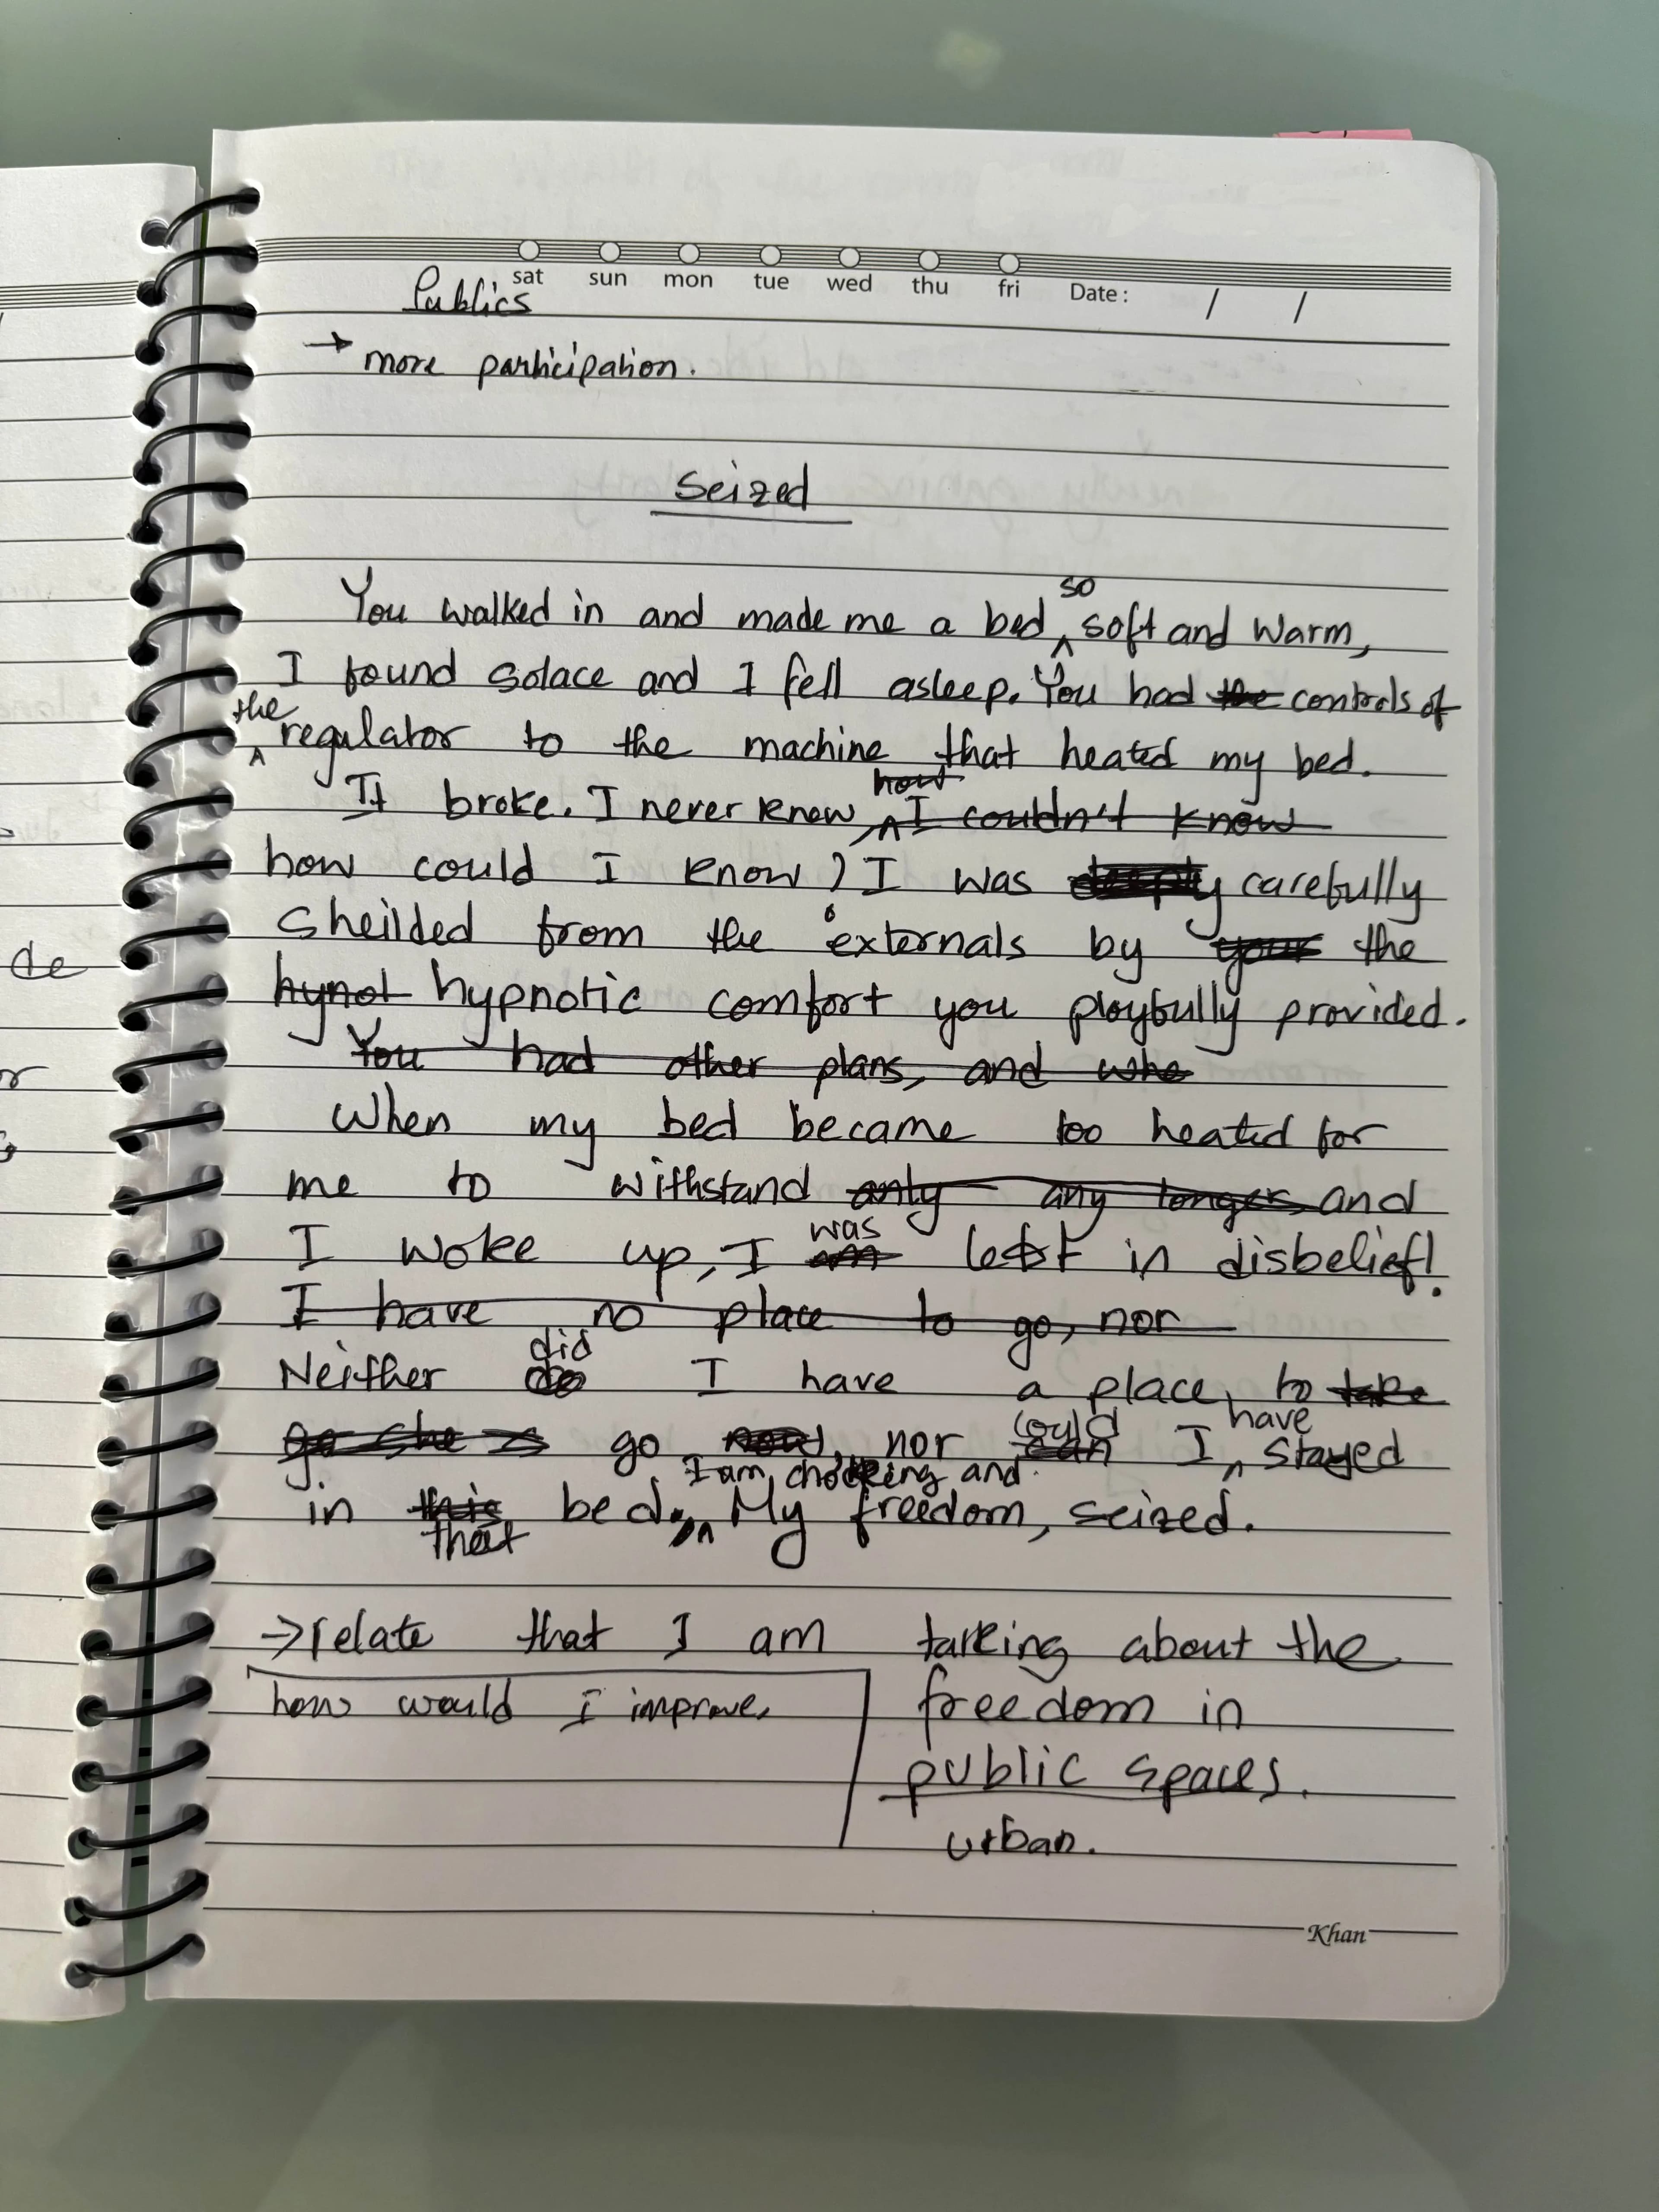 sat sun mon tue wed thu fri Date: / /
Publics
→ more participation.
Seized
so
You walked in and made me a bed ^ soft and warm,
I found solace and I fell asleep. You had the controls of
the
^ regulator to the machine that heated my bed.
how
It broke. I never know, ^ I couldn't know
how could I know? I was deeply carefully
sheilded from the externals by your the
hynot hypnotic comfort you playfully provided.
You had other plans, and whe
When my bed became too heated for
me to withstand any longer and
was
I woke up, I am left in disbelief!
I have no place to go, nor
did
Neither do I have a place, to take
could have
go she is go now, nor can I ^ stayed
I am chocking and
in this bed. ^ My freedom, seized.
that
→ relate that I am talking about the
how would I improve. freedom in
public spaces.
urban.
Khan
de
or